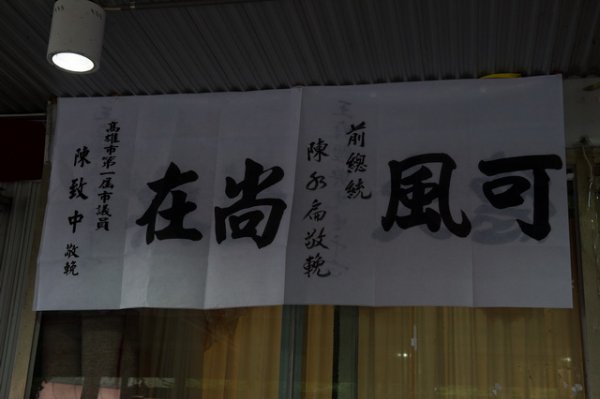 可風
前總統
陳水扁敬輓
尚在
高雄市第一屆市議員
陳致中敬輓